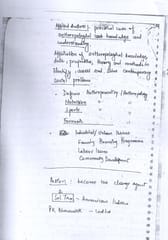 Applied Anthro: practical uses of
anthropological knowledge and
understanding
Application of anthropological knowledge,
data, perspective, theory and methods to
identify, assess and solve contemporary
social problems
Defence Anthropometry / Anthropology
Nutrition
Sports
Forensic
Industrial / Urban
Family Planning Programme
Labour
Community Development
Action: become the change agent
Sol Tax - American Indians